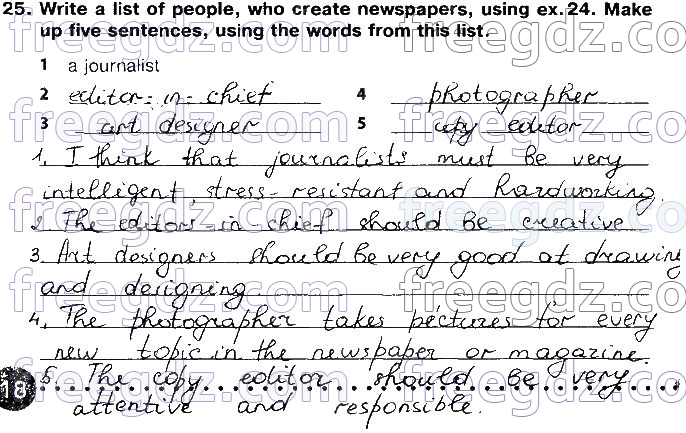 25. Write a list of people, who create newspapers, using ex.24. Make
up five sentences, using the words from this list.
1 a journalist
2 editor-in-chief 4 photographer
3 art designer 5 copy editor
1. I think that journalists must be very
intelligent, stress-resistant and hardworking.
2 The editors-in-chief should be creative
3. Art designers should be very good at drawing
and designing
4. The photographer takes pectures for every
new topic in the newspaper or magazine.
5. The copy editor should be very
18
attentive and responsible.
freegdz.com freegdz.com
freegdz.com freegdz.com
freegdz.com freegdz.com
freegdz.com freegdz.com
freegdz.com freegdz.com